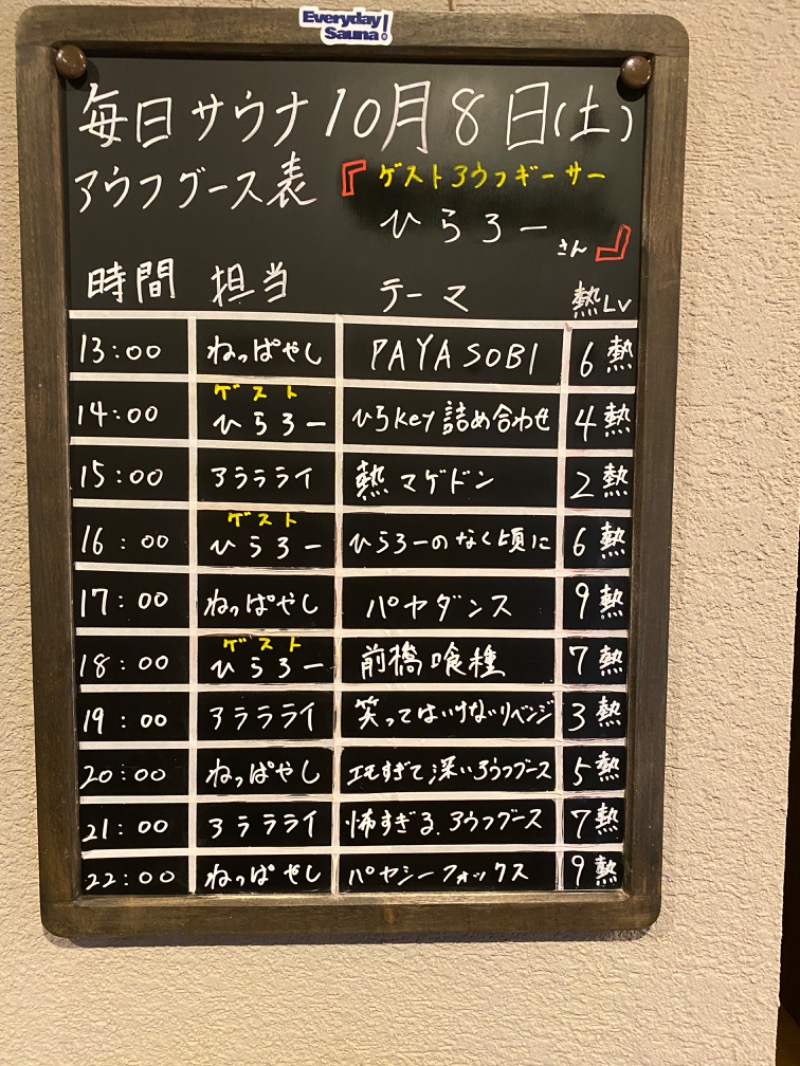 Everyday
Sauna!
毎日サウナ 10月8日(土)
アウフグース表
『ゲストアウフギーサー
ひらろー さん』
時間 担当 テーマ 熱Lv
13:00 ねっぱやし PAYASOBI 6熱
14:00 ゲスト ひらろー ひらkey詰め合わせ 4熱
15:00 アララライ 熱マゲドン 2熱
16:00 ゲスト ひらろー ひらろーのなく頃に 6熱
17:00 ねっぱやし パヤダンス 9熱
18:00 ゲスト ひらろー 前橋喰種 7熱
19:00 アララライ 笑ってはいけないリベンジ 3熱
20:00 ねっぱやし エモすぎて深いアウフグース 5熱
21:00 アララライ 怖すぎる.アウフグース 7熱
22:00 ねっぱやし パヤシーフォックス 9熱